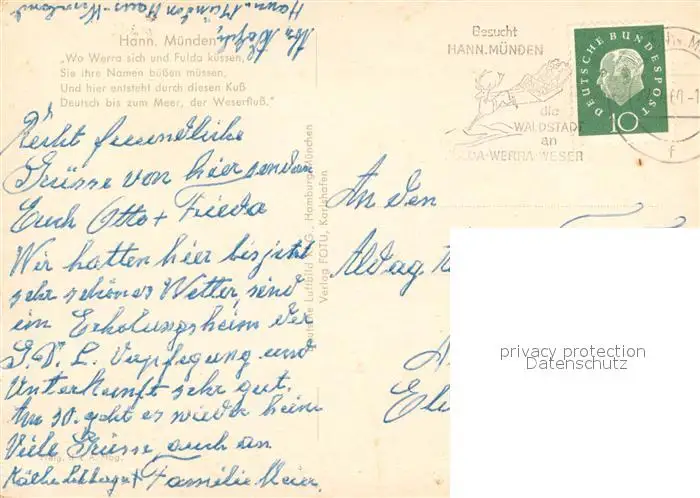 Hann. Münden
„Wo Werra sich und Fulda küssen,
Sie ihre Namen büßen müssen,
Und hier entsteht durch diesen Kuß
Deutsch bis zum Meer, der Weserfluß.“
Recht freundliche
Grüsse von hier senden
Euch Otto + Frieda
Wir hatten hier bis jetzt
sehr schönes Wetter, sind
im Erholungsheim der
Verpflegung und
Unterkunft sehr gut.
Am 30. geht es wieder heim
Viele Grüsse, auch an
Käthe + Familie Meier.
Hann. Münden
Deutsche Luftbild K.G., Hamburg/München
Verlag FOTU, Karlshafen
Besucht
HANN. MÜNDEN
die
WALDSTADT
an
WERRA-WESER
DEUTSCHE BUNDESPOST
10
An den
privacy protection
Datenschutz